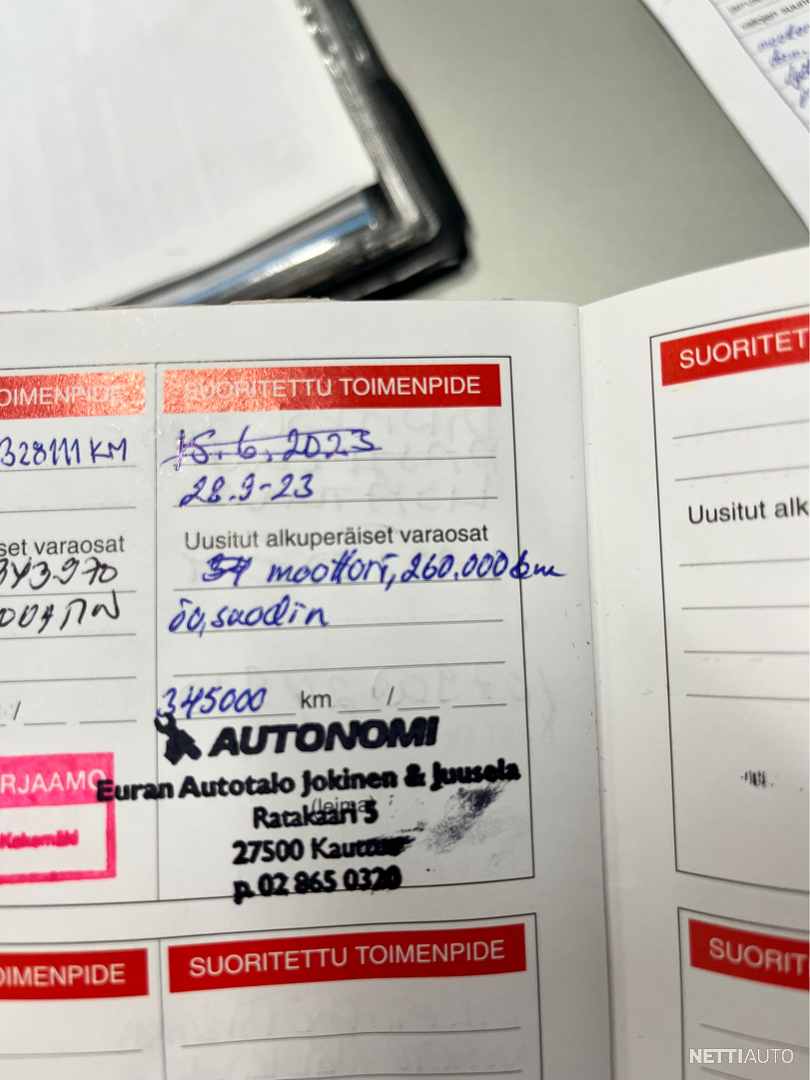 OIMENPIDE
328111 KM
set varaosat
343970
/
RJAAMO
Kokemäki
SUORITETTU TOIMENPIDE
15.6.2023
28.9-23
Uusitut alkuperäiset varaosat
moottori, 260.000 km
öo, suodin
345000 km /
AUTONOMI
Euran Autotalo Jokinen & Juusela
(leima)
Ratakaari 5
27500 Kauttua
p. 02 865 0320
OIMENPIDE
SUORITETTU TOIMENPIDE
SUORITET
Uusitut alk
SUORIT
NETTIAUTO